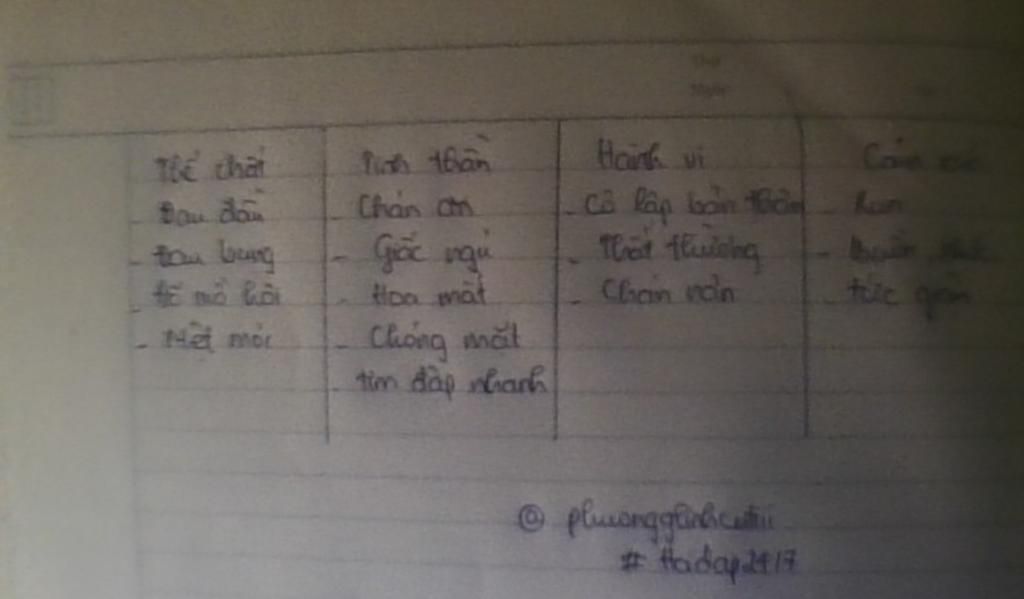 Thứ
Ngày
Thể chất
Tinh thần
Hành vi
Cảm xúc
- Đau đầu
- Chán ăn
- Cô lập bản thân
- Run
- Đau bụng
- Giấc ngủ
- Thất thường
- buồn
- đổ mồ hôi
- Hoa mắt
- Chán nản
- tức giận
- Mệt mỏi
- Chóng mặt
- tim đập nhanh
@
# Hoidap247